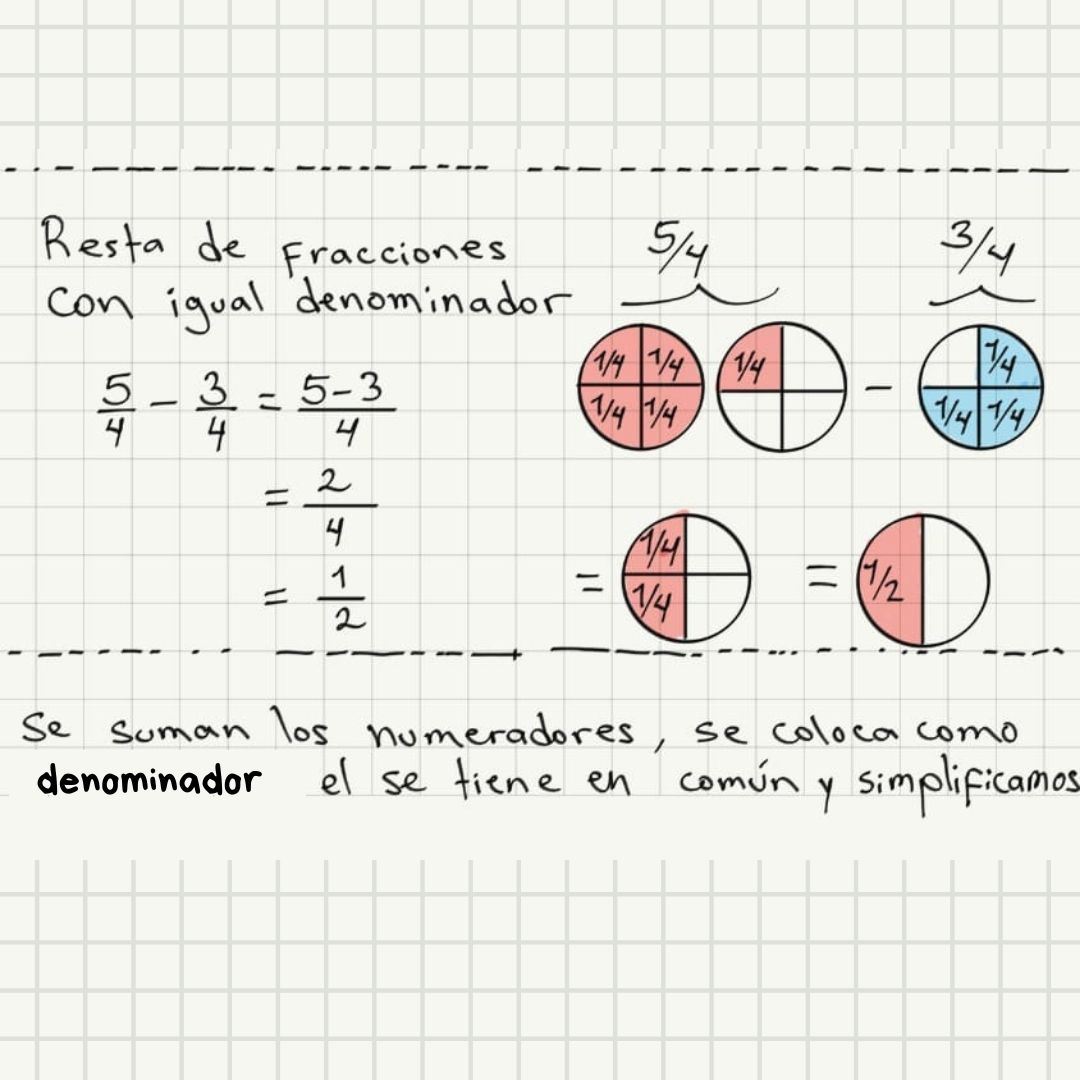 Resta de Fracciones
con igual denominador
5/4 - 3/4 = 5-3/4
= 2/4
= 1/2
5/4 3/4
1/4 1/4 1/4 - 1/4
1/4 1/4 1/4 1/4
= 1/4 = 1/2
1/4
Se suman los numeradores, se coloca como
denominador el se tiene en común y simplificamos